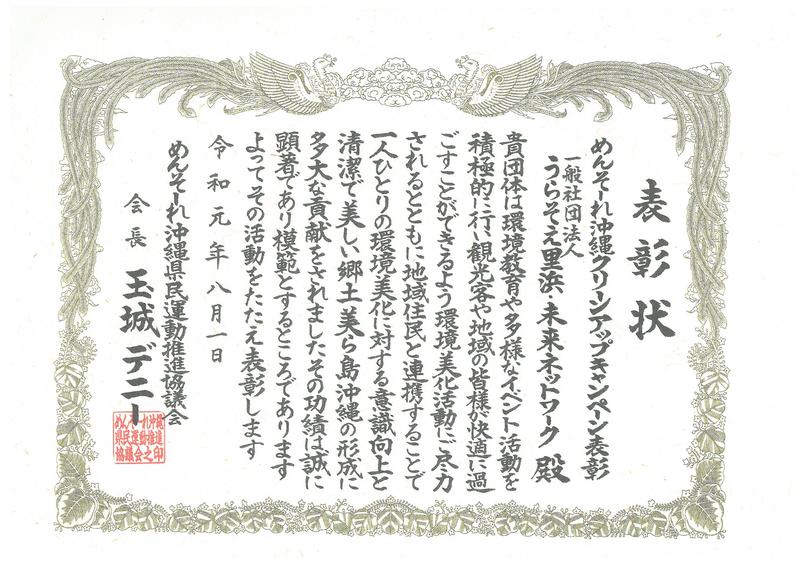 表彰状
めんそーれ沖縄クリーンアップキャンペーン表彰
一般社団法人
うらそえ里浜・未来ネットワーク 殿
貴団体は環境教育や多様なイベント活動を
積極的に行い観光客や地域の皆様が快適に過
ごすことができるよう環境美化活動にご尽力
されるとともに地域住民と連携することで
一人ひとりの環境美化に対する意識向上と
清潔で美しい郷土美ら島沖縄の形成に
多大な貢献をされましたその功績は誠に
顕著であり模範とするところであります
よってその活動をたたえ表彰します
令和元年八月一日
めんそーれ沖縄県民運動推進協議会
会長 玉城デニー
めんそーれ沖縄
県民運動推進
協議会之印